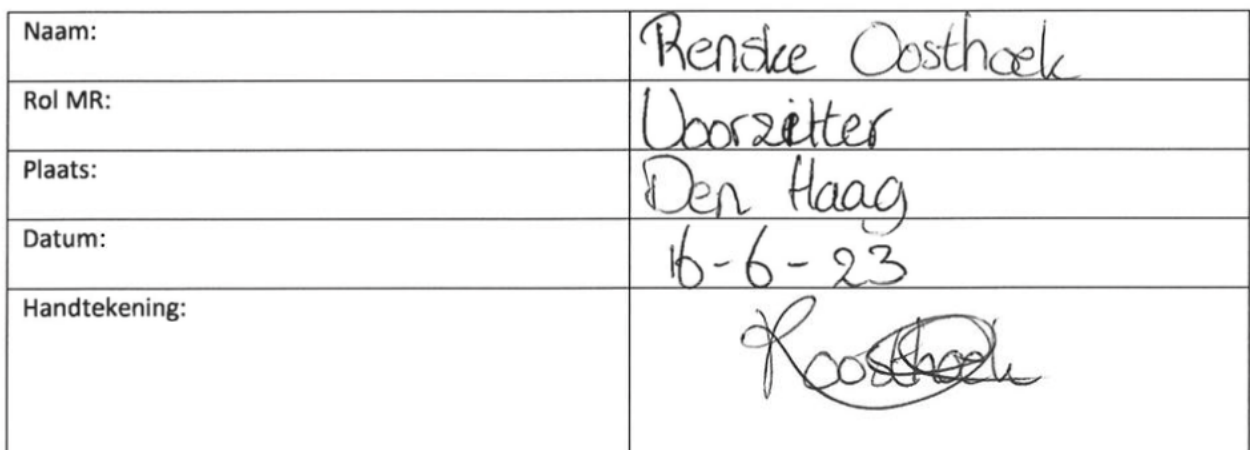 Naam: Renske Oosthoek
Rol MR: Voorzitter
Plaats: Den Haag
Datum: 16-6-23
Handtekening: Roosthoek